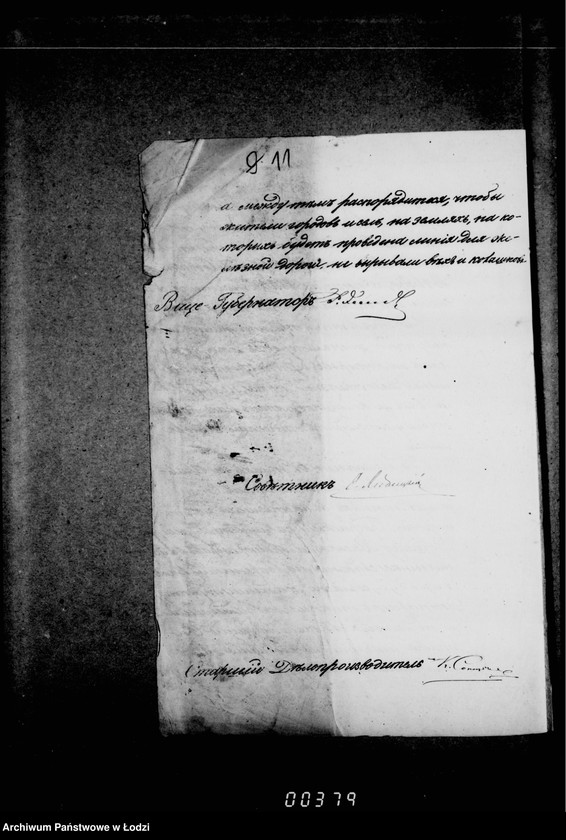 9 11
а между тѣмъ распорядиться, чтобы
жители городовъ и селъ, на земляхъ, на ко-
торыхъ будетъ проведена линія для же-
лѣзной дороги, не вырывали вѣхъ и
Вице-Губернаторъ
Совѣтникъ
Старшій Дѣлопроизводитель
00379
Archiwum Państwowe w Łodzi